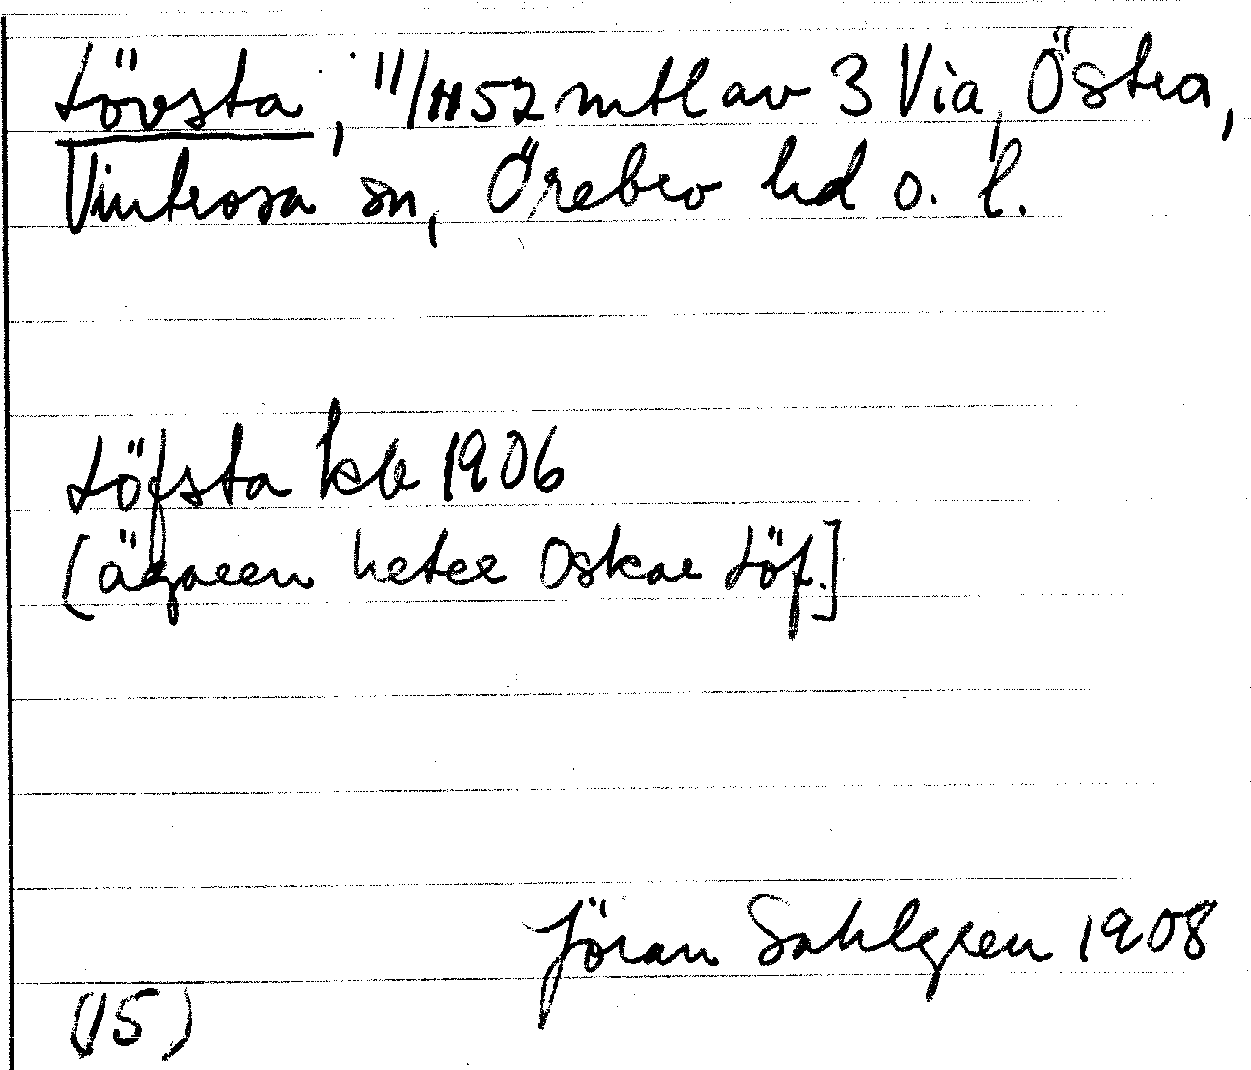 Lövsta, 11/1152 mtl av 3 Via, Östra,
Vintrosa sn, Örebro hd o. l.
Löfsta kb 1906
(ägaren heter Oskar Löf.]
Jöran Sahlgren 1908
(15)